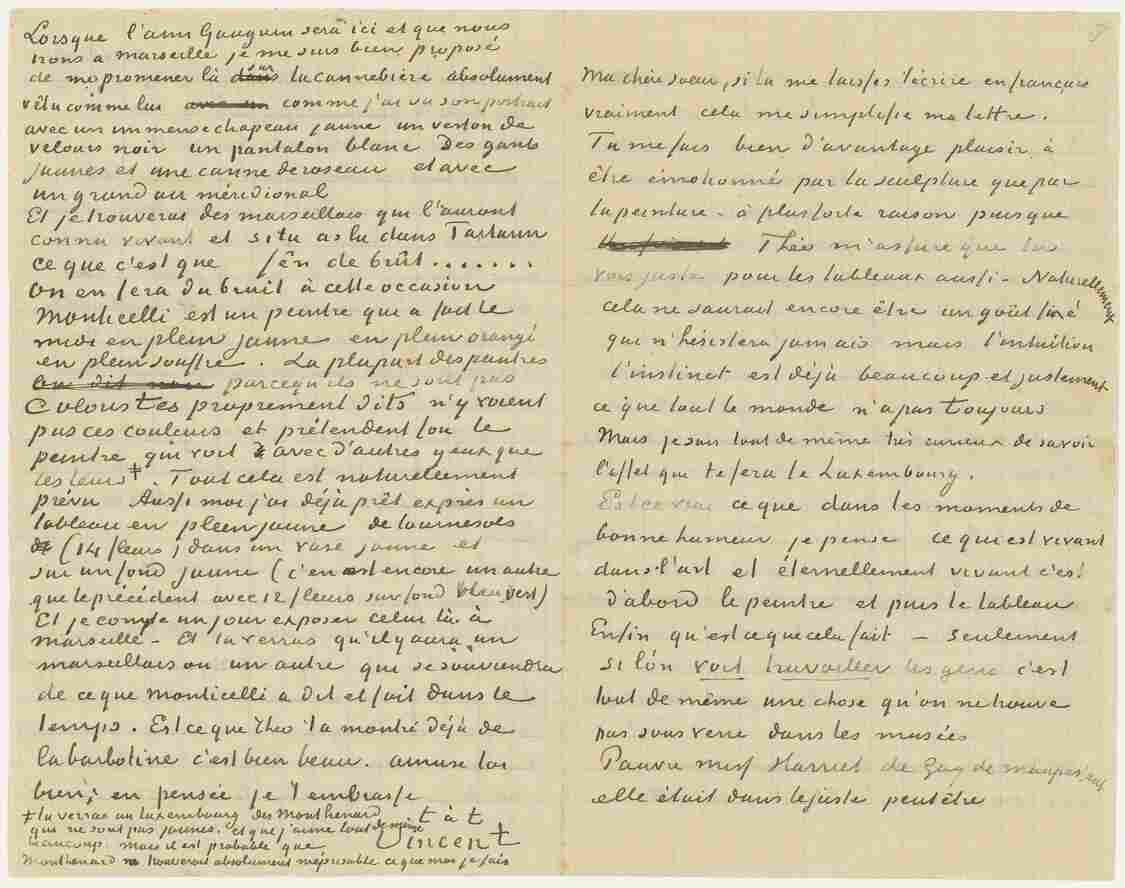 Lorsque l'ami Gauguin sera ici et que nous
irons a marseille je me suis bien proposé
de me promener là dans la cannebière absolument
vêtu comme lui comme j'ai vu son portrait
avec un immense chapeau jaune un veston de
velours noir un pantalon blanc Des gants
jaunes et une canne de roseau et avec
un grand air méridional
Et je trouverai des marseillais qui l'auront
connu vivant et si tu as lu dans Tartarin
ce que c'est que fén de brût.......
On en fera du bruit à cette occasion
Monticelli est un peintre qui a fait le
midi en plein jaune en plein orangé
en plein souffre. La plupart des peintres
parcequ'ils ne sont pas
Coloristes proprement dits n'y voient
pas ces couleurs et prétendent fou le
peintre qui voit avec d'autres yeux que
les leurs ‡. Tout cela est naturellement
prévu Aussi moi j'ai déjà prêt exprès un
tableau en plein jaune de tournesols
(14 fleurs) dans un vase jaune et
sur un fond jaune (c'en est encore un autre
que le précédent avec 12 fleurs sur fond bleu vert)
Et je compte un jour exposer celui là à
marseille - Et tu verras qu'il y aura un
marseillais ou un autre qui se souviendra
de ce que Monticelli a dit et fait dans le
temps. Est ce que Théo t'a montré déjà de
la barbotine c'est bien beau. amuse toi
bien, en pensée je t'embrasse
t. à t
Vincent
‡ tu verras au Luxembourg des Monthenard
qui ne sont pas jaunes. et que j'aime tout de même
beaucoup mais il est probable que
Monthenard trouverait absolument méprisable ce que moi je fais
Ma chère soeur, si tu me laisses t'écrire en français
vraiment cela me simplifie ma lettre.
Tu me fais bien d'avantage plaisir à
être émotionné par la sculpture que par
la peinture - à plus forte raison puisque
Théo m'assure que tu
vois juste pour les tableaux aussi - Naturellement
cela ne saurait encore être un goût fixé
qui n'hésitera jamais mais l'intuition
l'instinct est déjà beaucoup et justement
ce que tout le monde n'a pas toujours
Mais je suis tout de même très curieux de savoir
l'effet que te fera le Luxembourg.
Est ce vrai ce que dans les moments de
bonne humeur je pense ce qui est vivant
dans l'art et éternellement vivant c'est
d'abord le peintre et puis le tableau
Enfin qu'est ce que cela fait - seulement
si l'ôn voit travailler les gens c'est
tout de même une chose qu'on ne trouve
pas sous verre dans les musées
Pauvre miss Harriet de Guy de maupassant
elle était dans le juste peutêtre